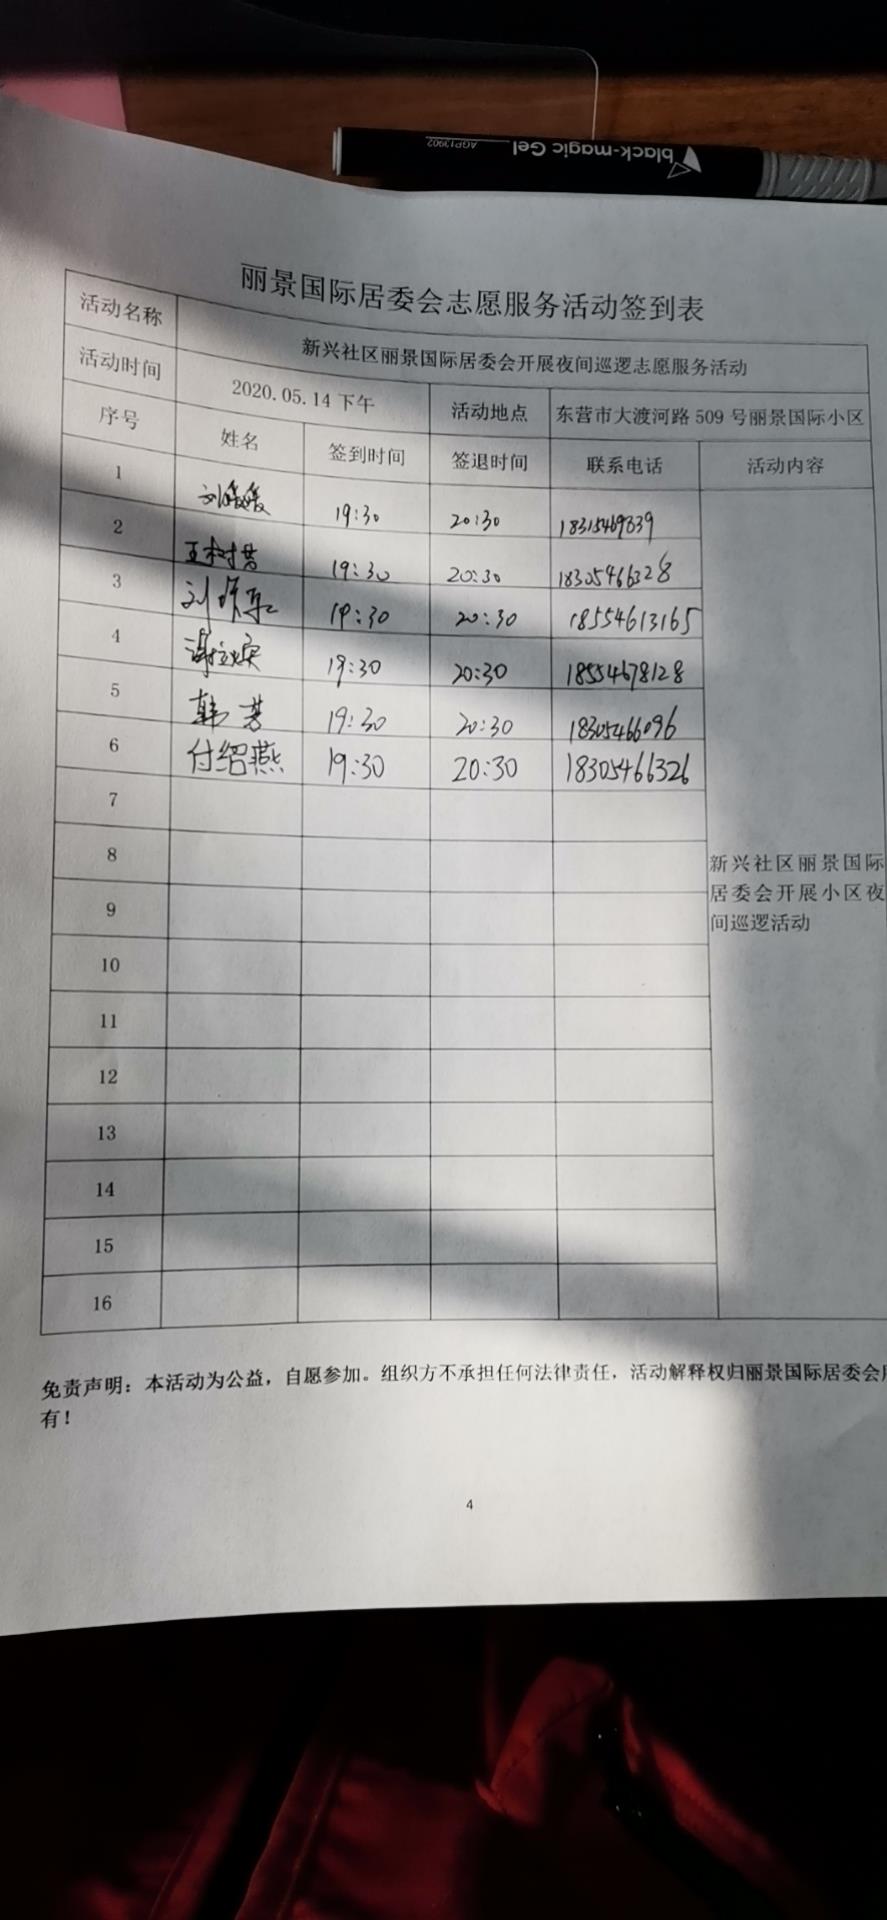 black-magic Gel
AGP13902
丽景国际居委会志愿服务活动签到表
活动名称 新兴社区丽景国际居委会开展夜间巡逻志愿服务活动
活动时间 2020.05.14下午 活动地点 东营市大渡河路509号丽景国际小区
序号 姓名 签到时间 签退时间 联系电话 活动内容
1 刘媛媛 19:30 20:30 18315469839
2 王树芸 19:30 20:30 18305466328
3 刘 19:30 20:30 18554613165
4 19:30 20:30 18554678128
5 韩芳 19:30 20:30 18305466096
6 付绍燕 19:30 20:30 18305466326
7
8
9
10
11
12
13
14
15
16
新兴社区丽景国际
居委会开展小区夜
间巡逻活动
免责声明：本活动为公益，自愿参加。组织方不承担任何法律责任，活动解释权归丽景国际居委会所
有！
4